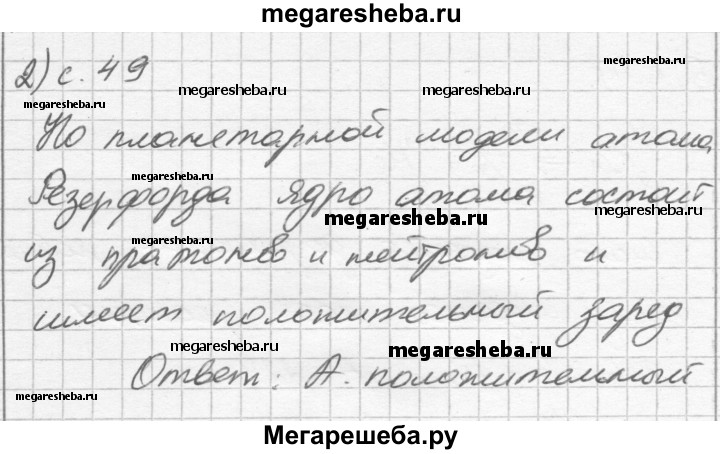 megaresheba.ru
2) с. 49
megaresheba.ru
megaresheba.ru
megaresheba.ru
По планетарной модели атома
megaresheba.ru
Резерфорда ядро атома состоит
megaresheba.ru
megaresheba.ru
megaresheba.ru
из пратонов и нейтронов и
имеет положительный заред
megaresheba.ru
megaresheba.ru
Ответ: А. положительный
megaresheba.ru
Мегарешеба.ру